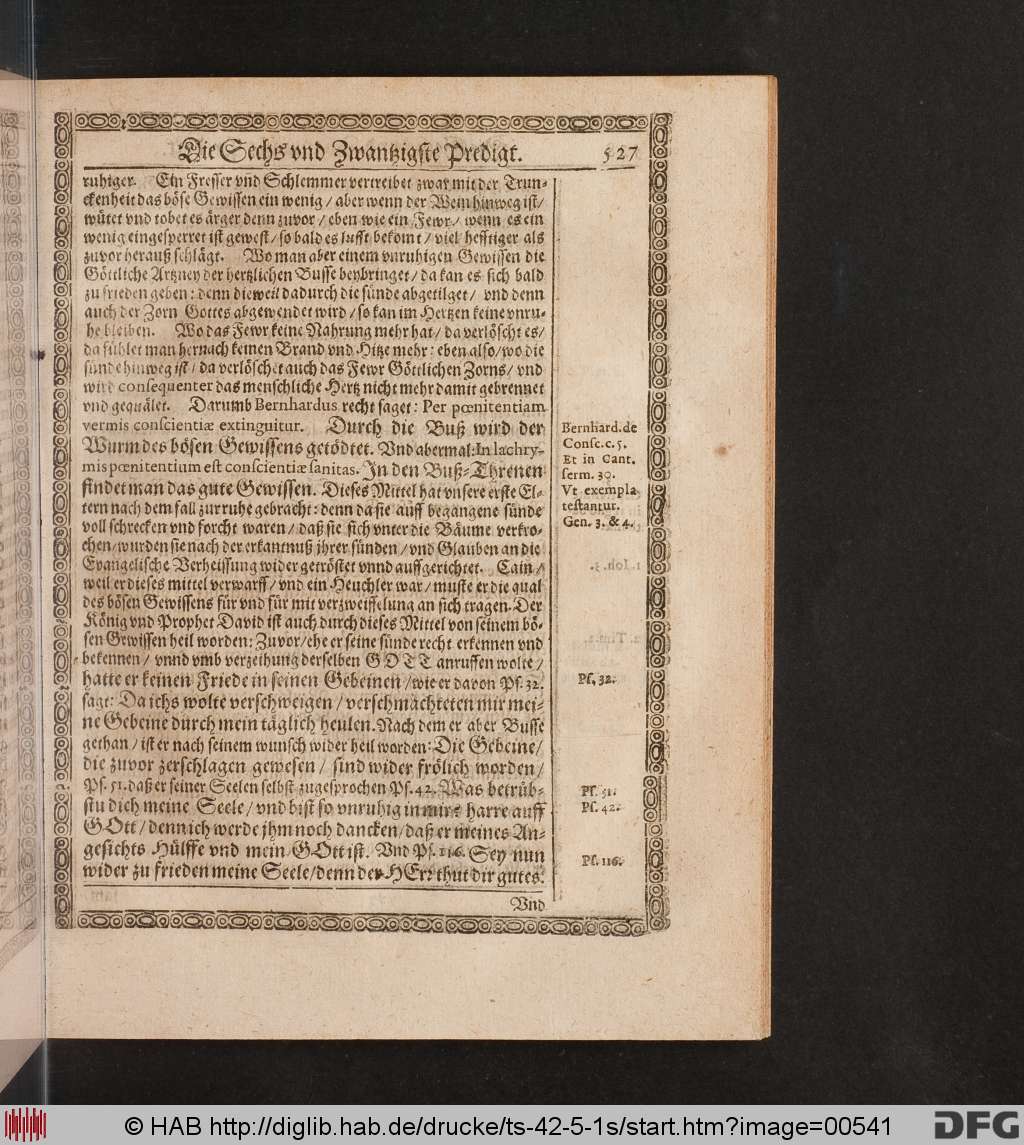 Die Sechs vnd Zwantzigste Predigt. 527
ruhiger. Ein Fresser vnd Schlemmer vertreibet zwar mit der Trun-
ckenheit das böse Gewissen ein wenig / aber wenn der Wein hinweg ist /
wütet vnd tobet es ärger denn zuvor / eben wie ein Fewr / wenn es ein
wenig eingesperret ist gewest / so bald es lufft bekomt / viel hefftiger als
zuvor herauß schlägt. Wo man aber einem vnruhigen Gewissen die
Göttliche Artzney der hertzlichen Busse beybringet / da kan es sich bald
zu frieden geben: denn dieweil dadurch die sünde abgetilget / vnd denn
auch der Zorn Gottes abgewendet wird / so kan im Hertzen keine vnru-
he bleiben. Wo das Fewr keine Nahrung mehr hat / da verlöscht es /
da fühlet man hernach keinen Brand vnd Hitze mehr: eben also / wo die
sünde hinweg ist / da verlöschet auch das Fewr Göttlichen Zorns / vnd
wird consequenter das menschliche Hertz nicht mehr damit gebrennet
vnd gequälet. Darumb Bernhardus recht saget: Per pœnitentiam
vermis conscientiæ extinguitur. Durch die Buß wird der
Wurm des bösen Gewissens getödtet. Vnd abermal: In lachry-
mis pœnitentium est conscientiæ sanitas. In den Buß-Threnen
findet man das gute Gewissen. Dieses Mittel hat vnsere erste El-
tern nach dem fall zur ruhe gebracht: denn da sie auff begangene sünde
voll schrecken vnd forcht waren / daß sie sich vnter die Bäume verkro-
chen / wurden sie nach der erkantnuß jhrer sünden / vnd Glauben an die
Evangelische Verheissung wider getröstet vnnd auffgerichtet. Cain /
weil er dieses mittel verwarff / vnd ein Heuchler war / muste er die qual
des bösen Gewissens für vnd für mit verzweiffelung an sich tragen. Der
König vnd Prophet David ist auch durch dieses Mittel von seinem bö-
sen Gewissen heil worden: Zuvor / ehe er seine sünde recht erkennen vnd
bekennen / vnnd vmb verzeihung derselben GOTT anruffen wolte /
hatte er keinen Friede in seinen Gebeinen / wie er davon Ps. 32.
sagt: Da ichs wolte verschweigen / verschmachteten mir mei-
ne Gebeine durch mein täglich heulen. Nach dem er aber Busse
gethan / ist er nach seinem wunsch wider heil worden: Die Gebeine /
die zuvor zerschlagen gewesen / sind wider frölich worden /
Ps. 51. daß er seiner Seelen selbst zugesprochen Ps. 42. Was betrüb-
stu dich meine Seele / vnd bist so vnruhig in mir? harre auff
GOtt / denn ich werde jhm noch dancken / daß er meines An-
gesichts Hülffe vnd mein GOtt ist. Vnd Ps. 116. Sey nun
wider zu frieden meine Seele / denn der HErr thut dir gutes.
Vnd
Bernhard. de
Consc. c. 5.
Et in Cant.
serm. 30.
Vt exempla
testantur.
Gen. 3. & 4.
Ps. 32.
Ps. 51.
Ps. 42.
Ps. 116.
© HAB http://diglib.hab.de/drucke/ts-42-5-1s/start.htm?image=00541
DFG